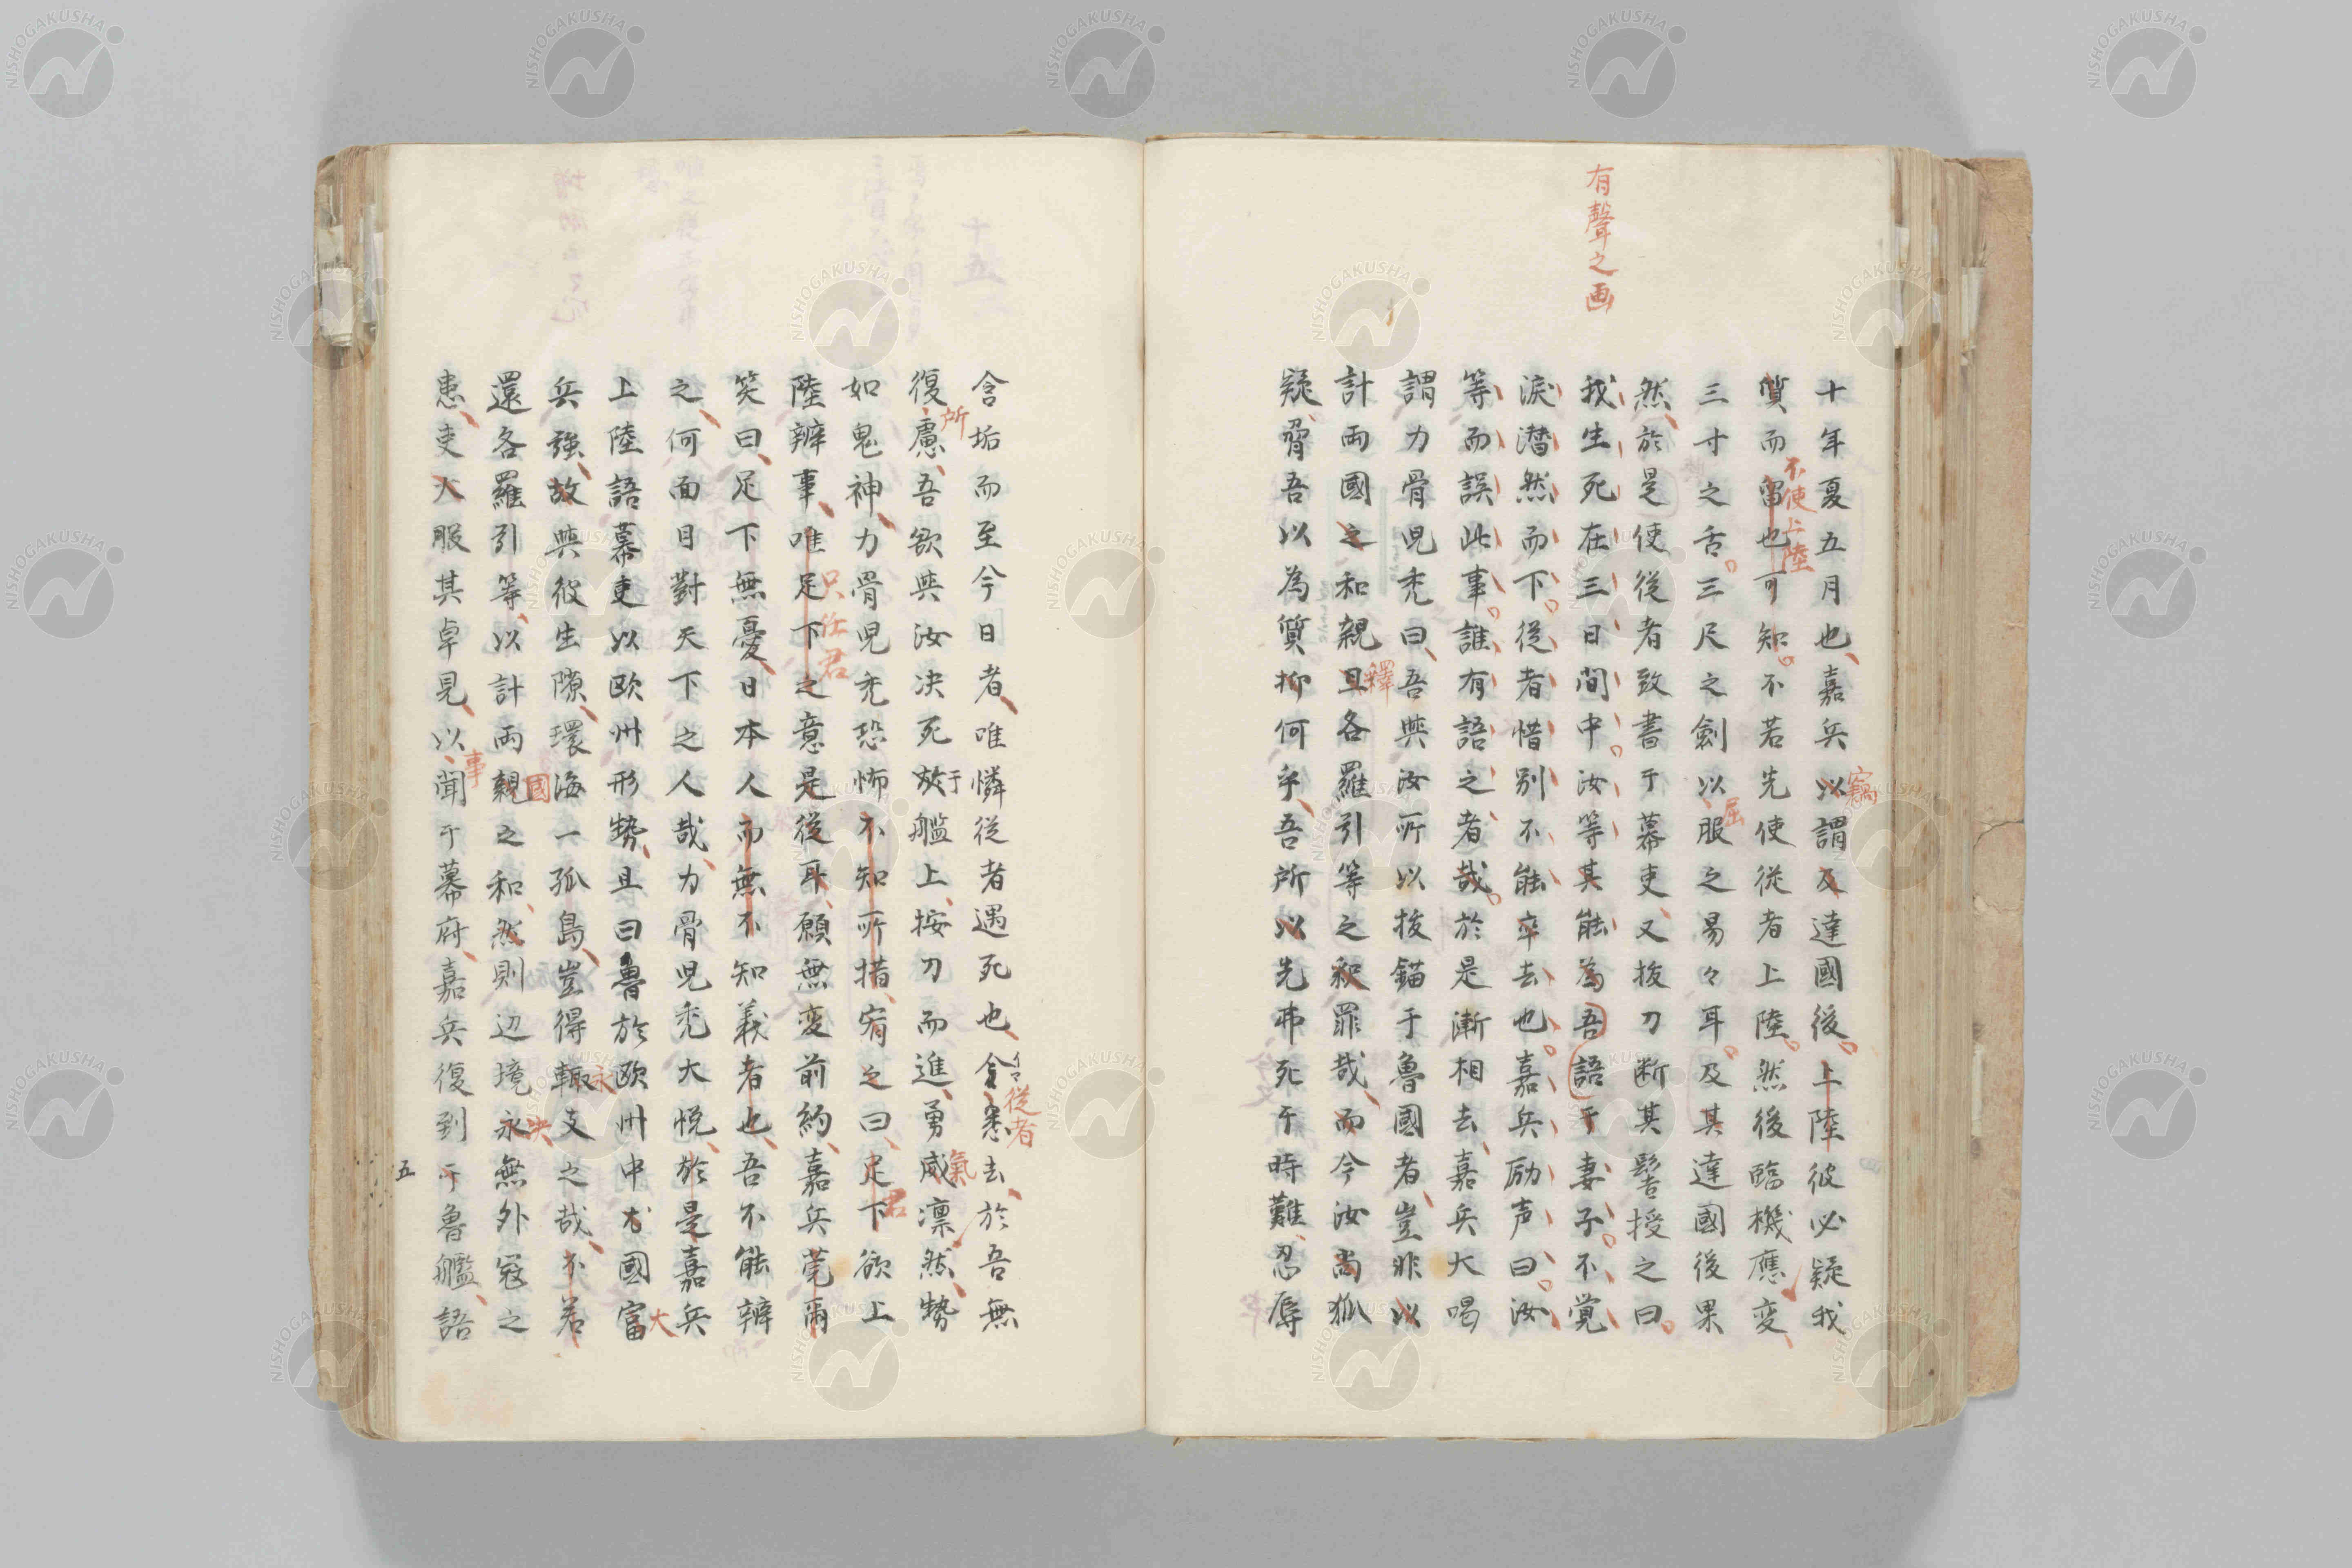 有聲之画
十年夏五月也嘉兵以謂及達國後上陸彼必疑我
竊
質而留也可知不若先使從者上陸然後臨機應変
不使上陸
三寸之舌三尺之劍以服之易々耳及其達國後果
屈
然於是使從者致書于幕吏又拔刀断其髻授之曰
我生死在三日間中汝等其能為吾語于妻子不覚
淚潜然而下從者惜別不能卒去也嘉兵励声曰汝
等而誤此事誰有語之者哉於是漸相去嘉兵大喝
謂力骨児禿曰吾與汝所以拔錨于魯國者豈非以
計両國之和親且各羅引等之釈罪哉而今汝尚狐
釋
疑脅吾以為質抑何乎吾所以先弗死于時難忍辱
含垢而至今日者唯憐從者遇死也今悉去於吾無
令
從者
復慮吾欲與汝決死於艦上按刀而進勇威凛然勢
所
于
氣
如鬼神力骨児禿恐怖不知所措宥之曰足下欲上
君
陸辨事唯足下之意是從耳願無変前約嘉兵莞爾
只任君
笑曰足下無憂日本人而無不知義者也吾不能辨
之何面目對天下之人哉力骨児禿大悦於是嘉兵
上陸語幕吏以欧州形勢且曰魯於欧州中尤國富
大
兵強故與彼生隙環海一孤島豈得輙支之哉不若
永
還各羅引等以計両親之和然則辺境永無外冦之
國
決
患吏大服其卓見以聞于幕府嘉兵復到于魯艦語
事
五